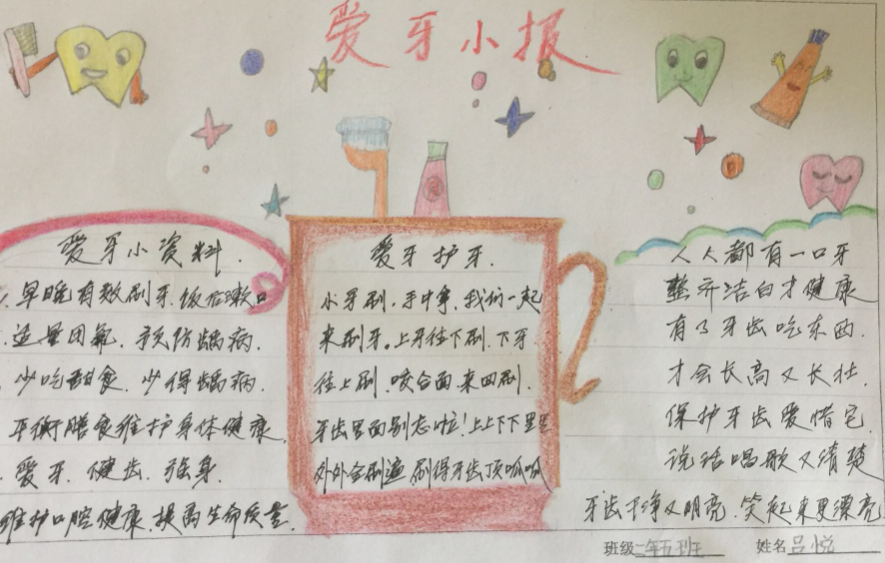 爱牙小报
爱牙小资料.
早晚有效刷牙.饭后漱口
适量用氟.预防龋病.
少吃甜食.少得龋病.
平衡膳食维护身体健康.
爱牙.健齿.强身.
维护口腔健康.提高生命质量.
爱牙护牙.
小牙刷.手中拿.我们一起
来刷牙。上牙往下刷.下牙
往上刷.咬合面来回刷.
牙齿里面别忘啦!上上下下里里
外外全刷遍刷得牙齿顶呱呱
人人都有一口牙
整齐洁白才健康
有了牙齿吃东西.
才会长高又长壮.
保护牙齿爱惜它.
说话唱歌又清楚
牙齿干净又明亮.笑起来更漂亮
班级 姓名吕悦